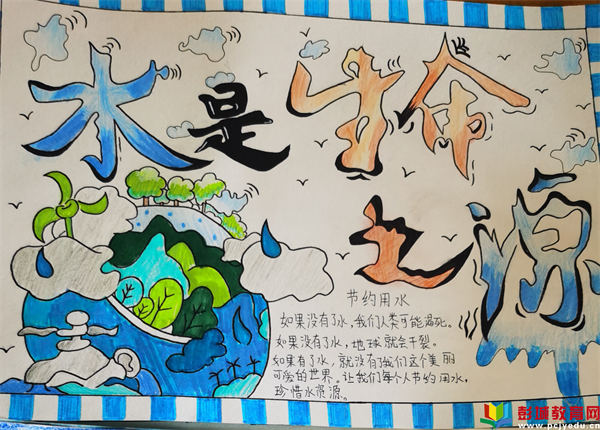 水是生命
之源
节约用水
如果没有了水，我们人类可能渴死。
如果没有了水，地球就会干裂。
如果有了水，就没有了我们这个美丽
可爱的世界。让我们每个人节约用水，
珍惜水资源。
彭城教育网
www.pcjyedu.cn